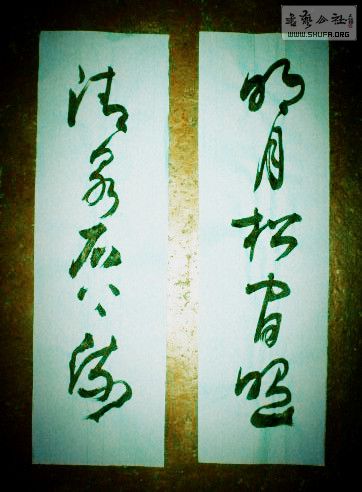 明月松间照
清泉石上流
书艺公社
WWW.SHUFA.ORG